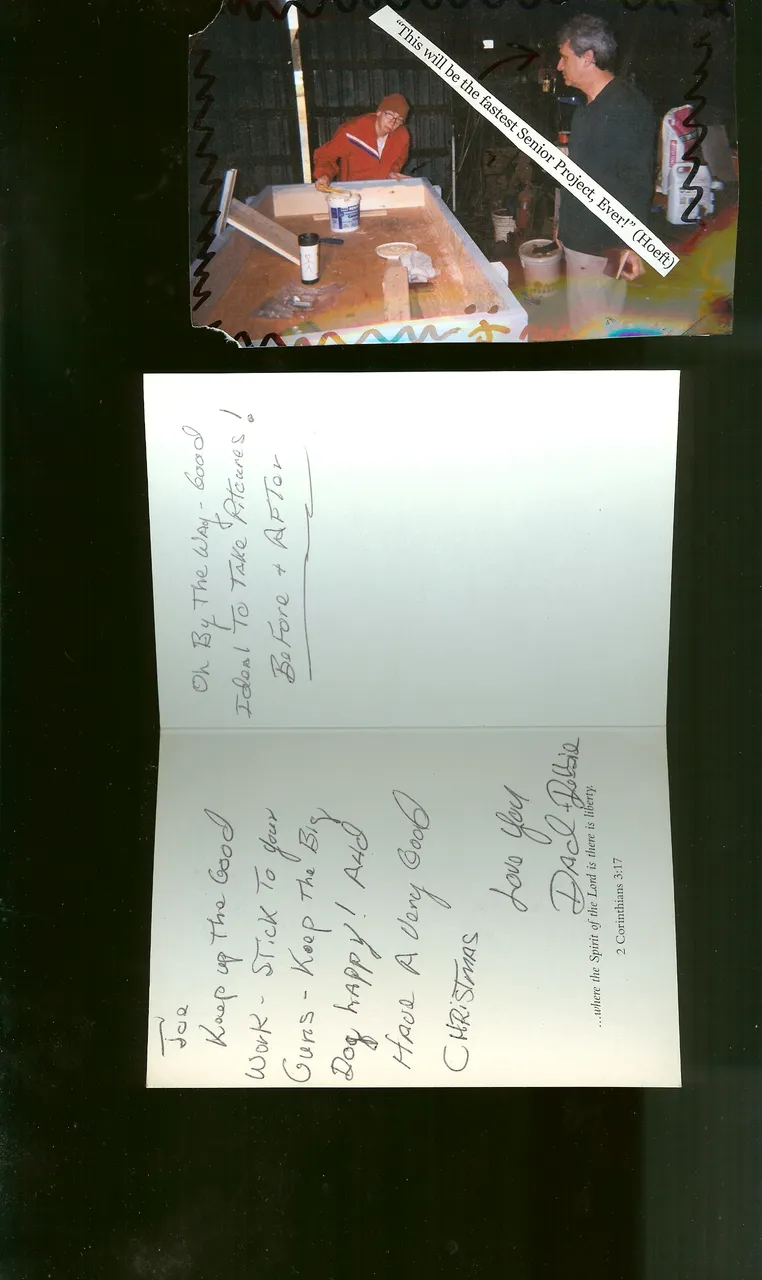 "This will be the fastest Senior Project, Ever!" (Hoeft)
Oh By The Way - Good
Ideal To Take Pitcures!
Before + After
Joe
Keep up The Good
Work - Stick To your
Guns - Keep The Big
Dog happy! And
Have A Very Good
CHRISTMAS
Love You
Dad + Debbie
...where the Spirit of the Lord is there is liberty.
2 Corinthians 3:17